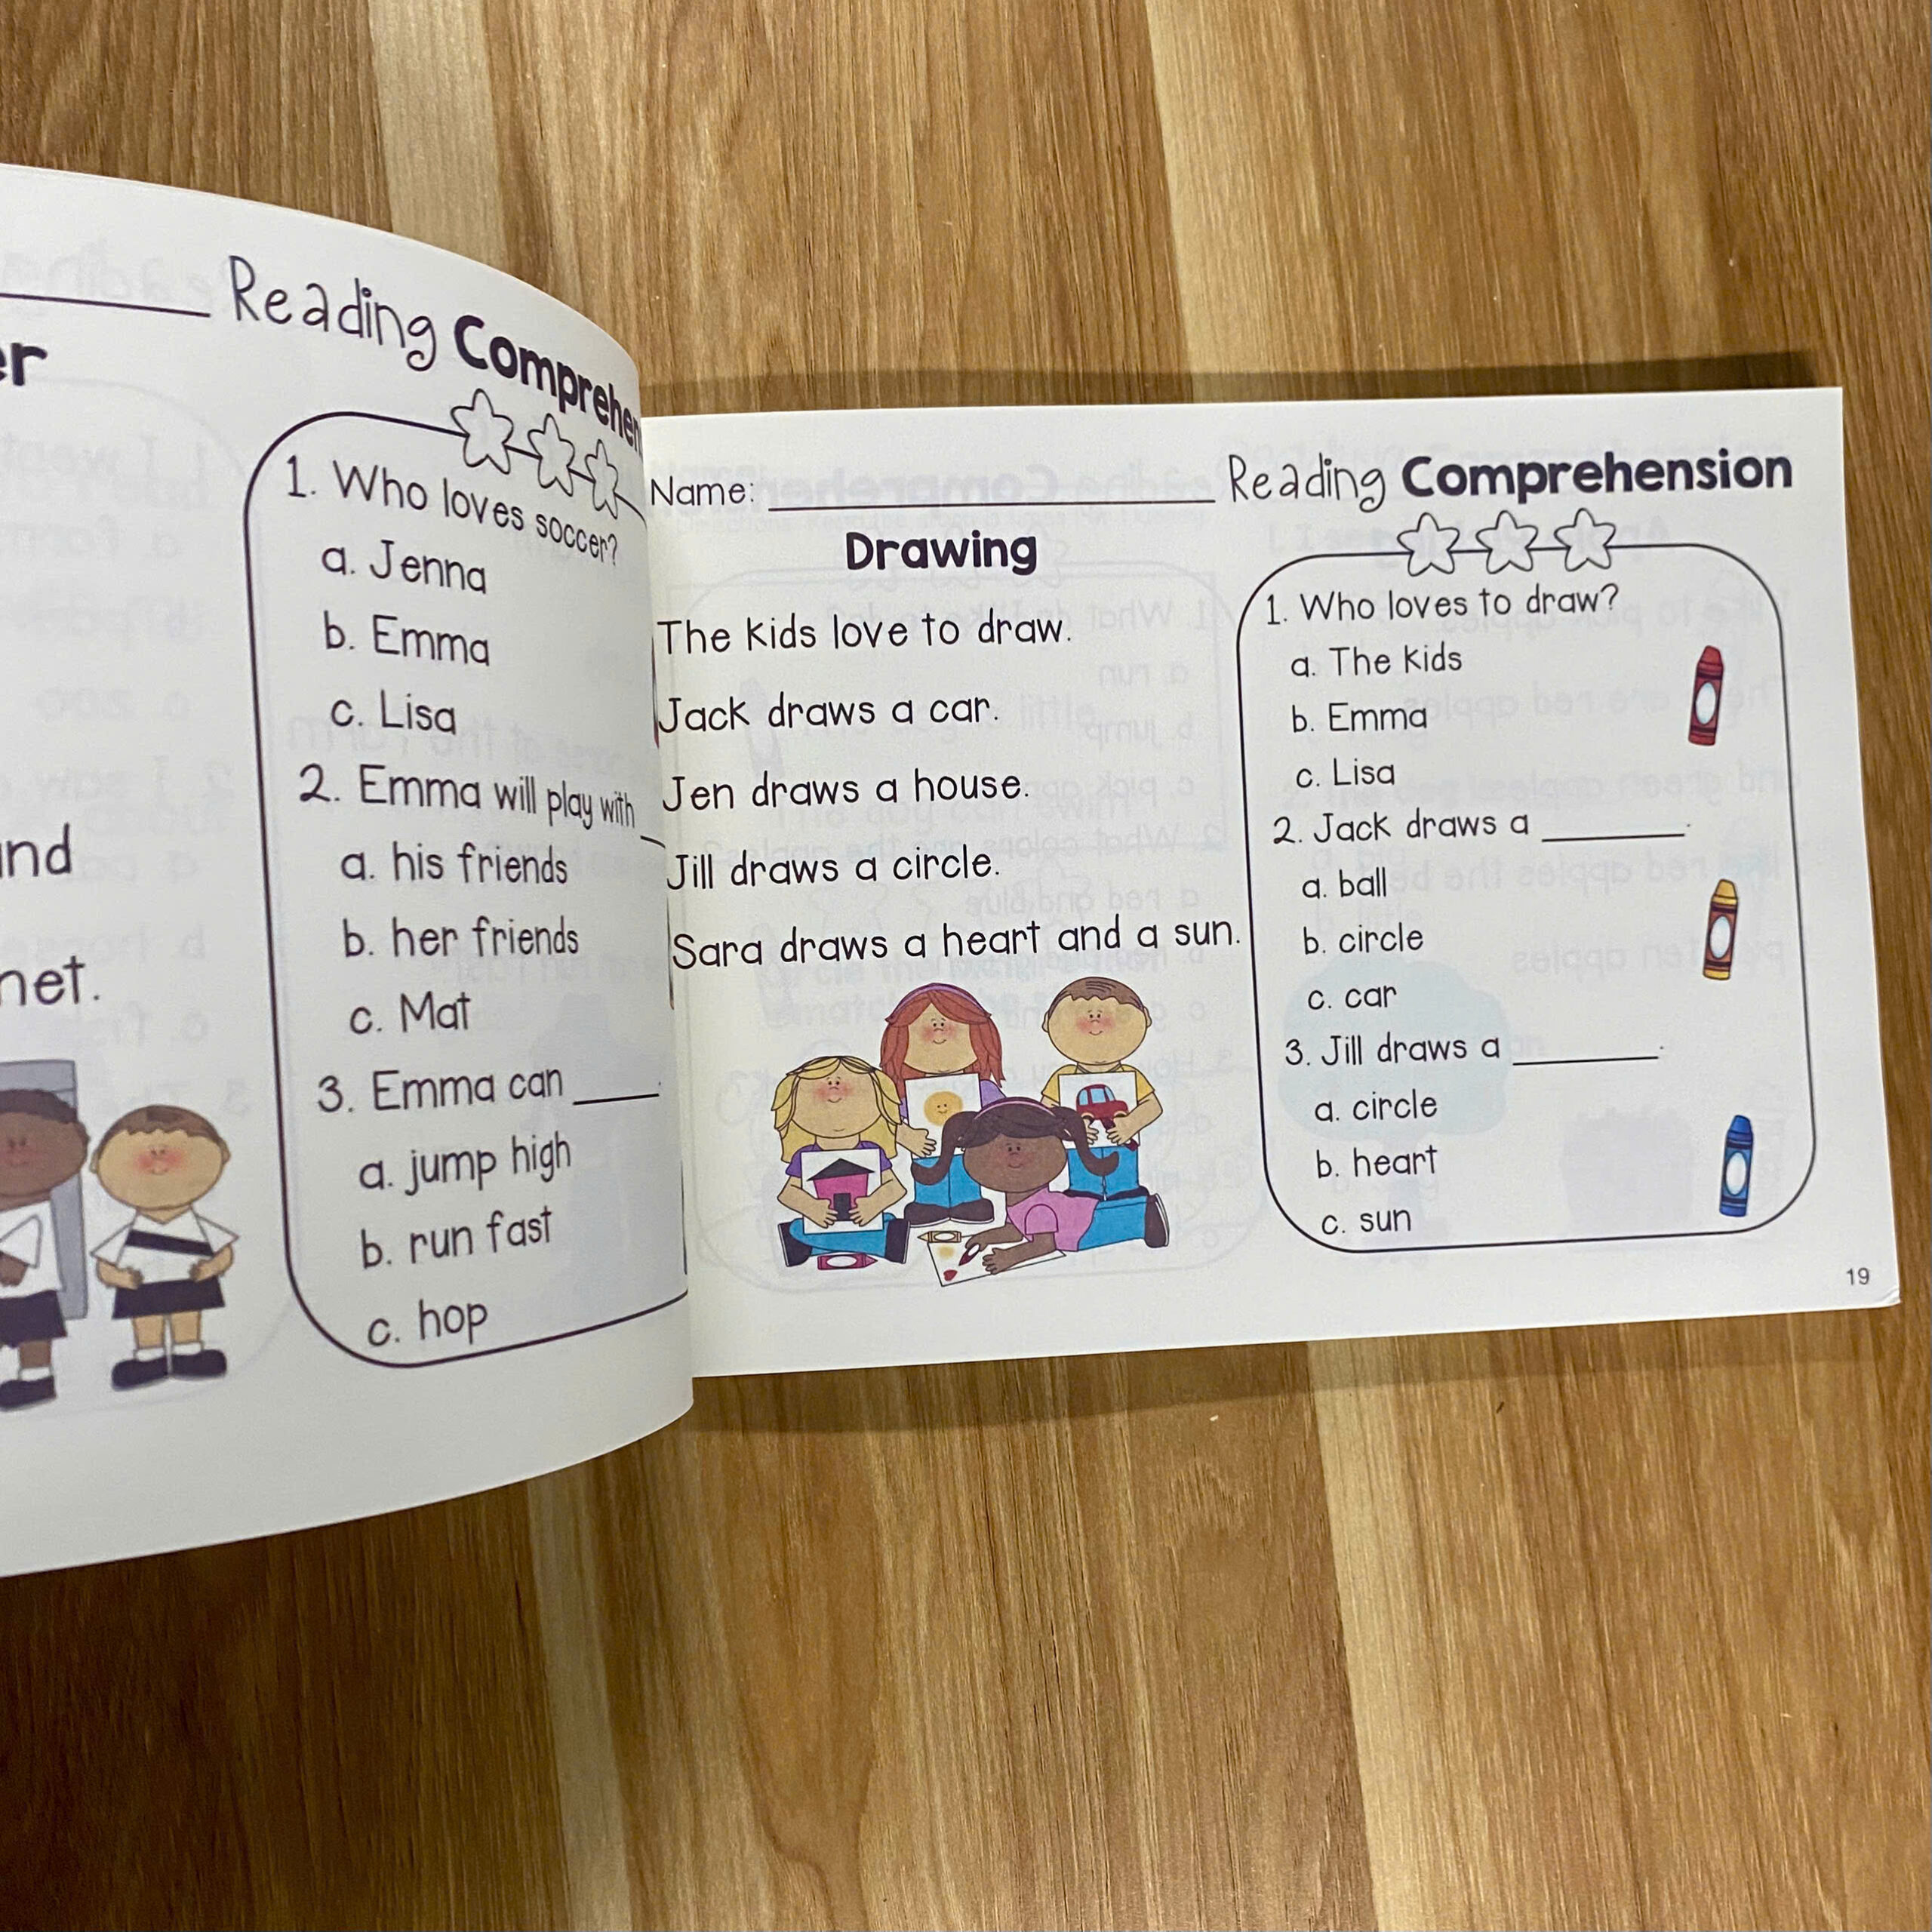 Reading Comprehen
er
nd
net.
1. Who loves soccer?
a. Jenna
b. Emma
c. Lisa
2. Emma will play with
a. his friends
b. her friends
c. Mat
3. Emma can ____.
a. jump high
b. run fast
c. hop
Name: ____________ Reading Comprehension
Drawing
The kids love to draw.
Jack draws a car.
Jen draws a house.
Jill draws a circle.
Sara draws a heart and a sun.
1. Who loves to draw?
a. The kids
b. Emma
c. Lisa
2. Jack draws a ______.
a. ball
b. circle
c. car
3. Jill draws a ______.
a. circle
b. heart
c. sun
19